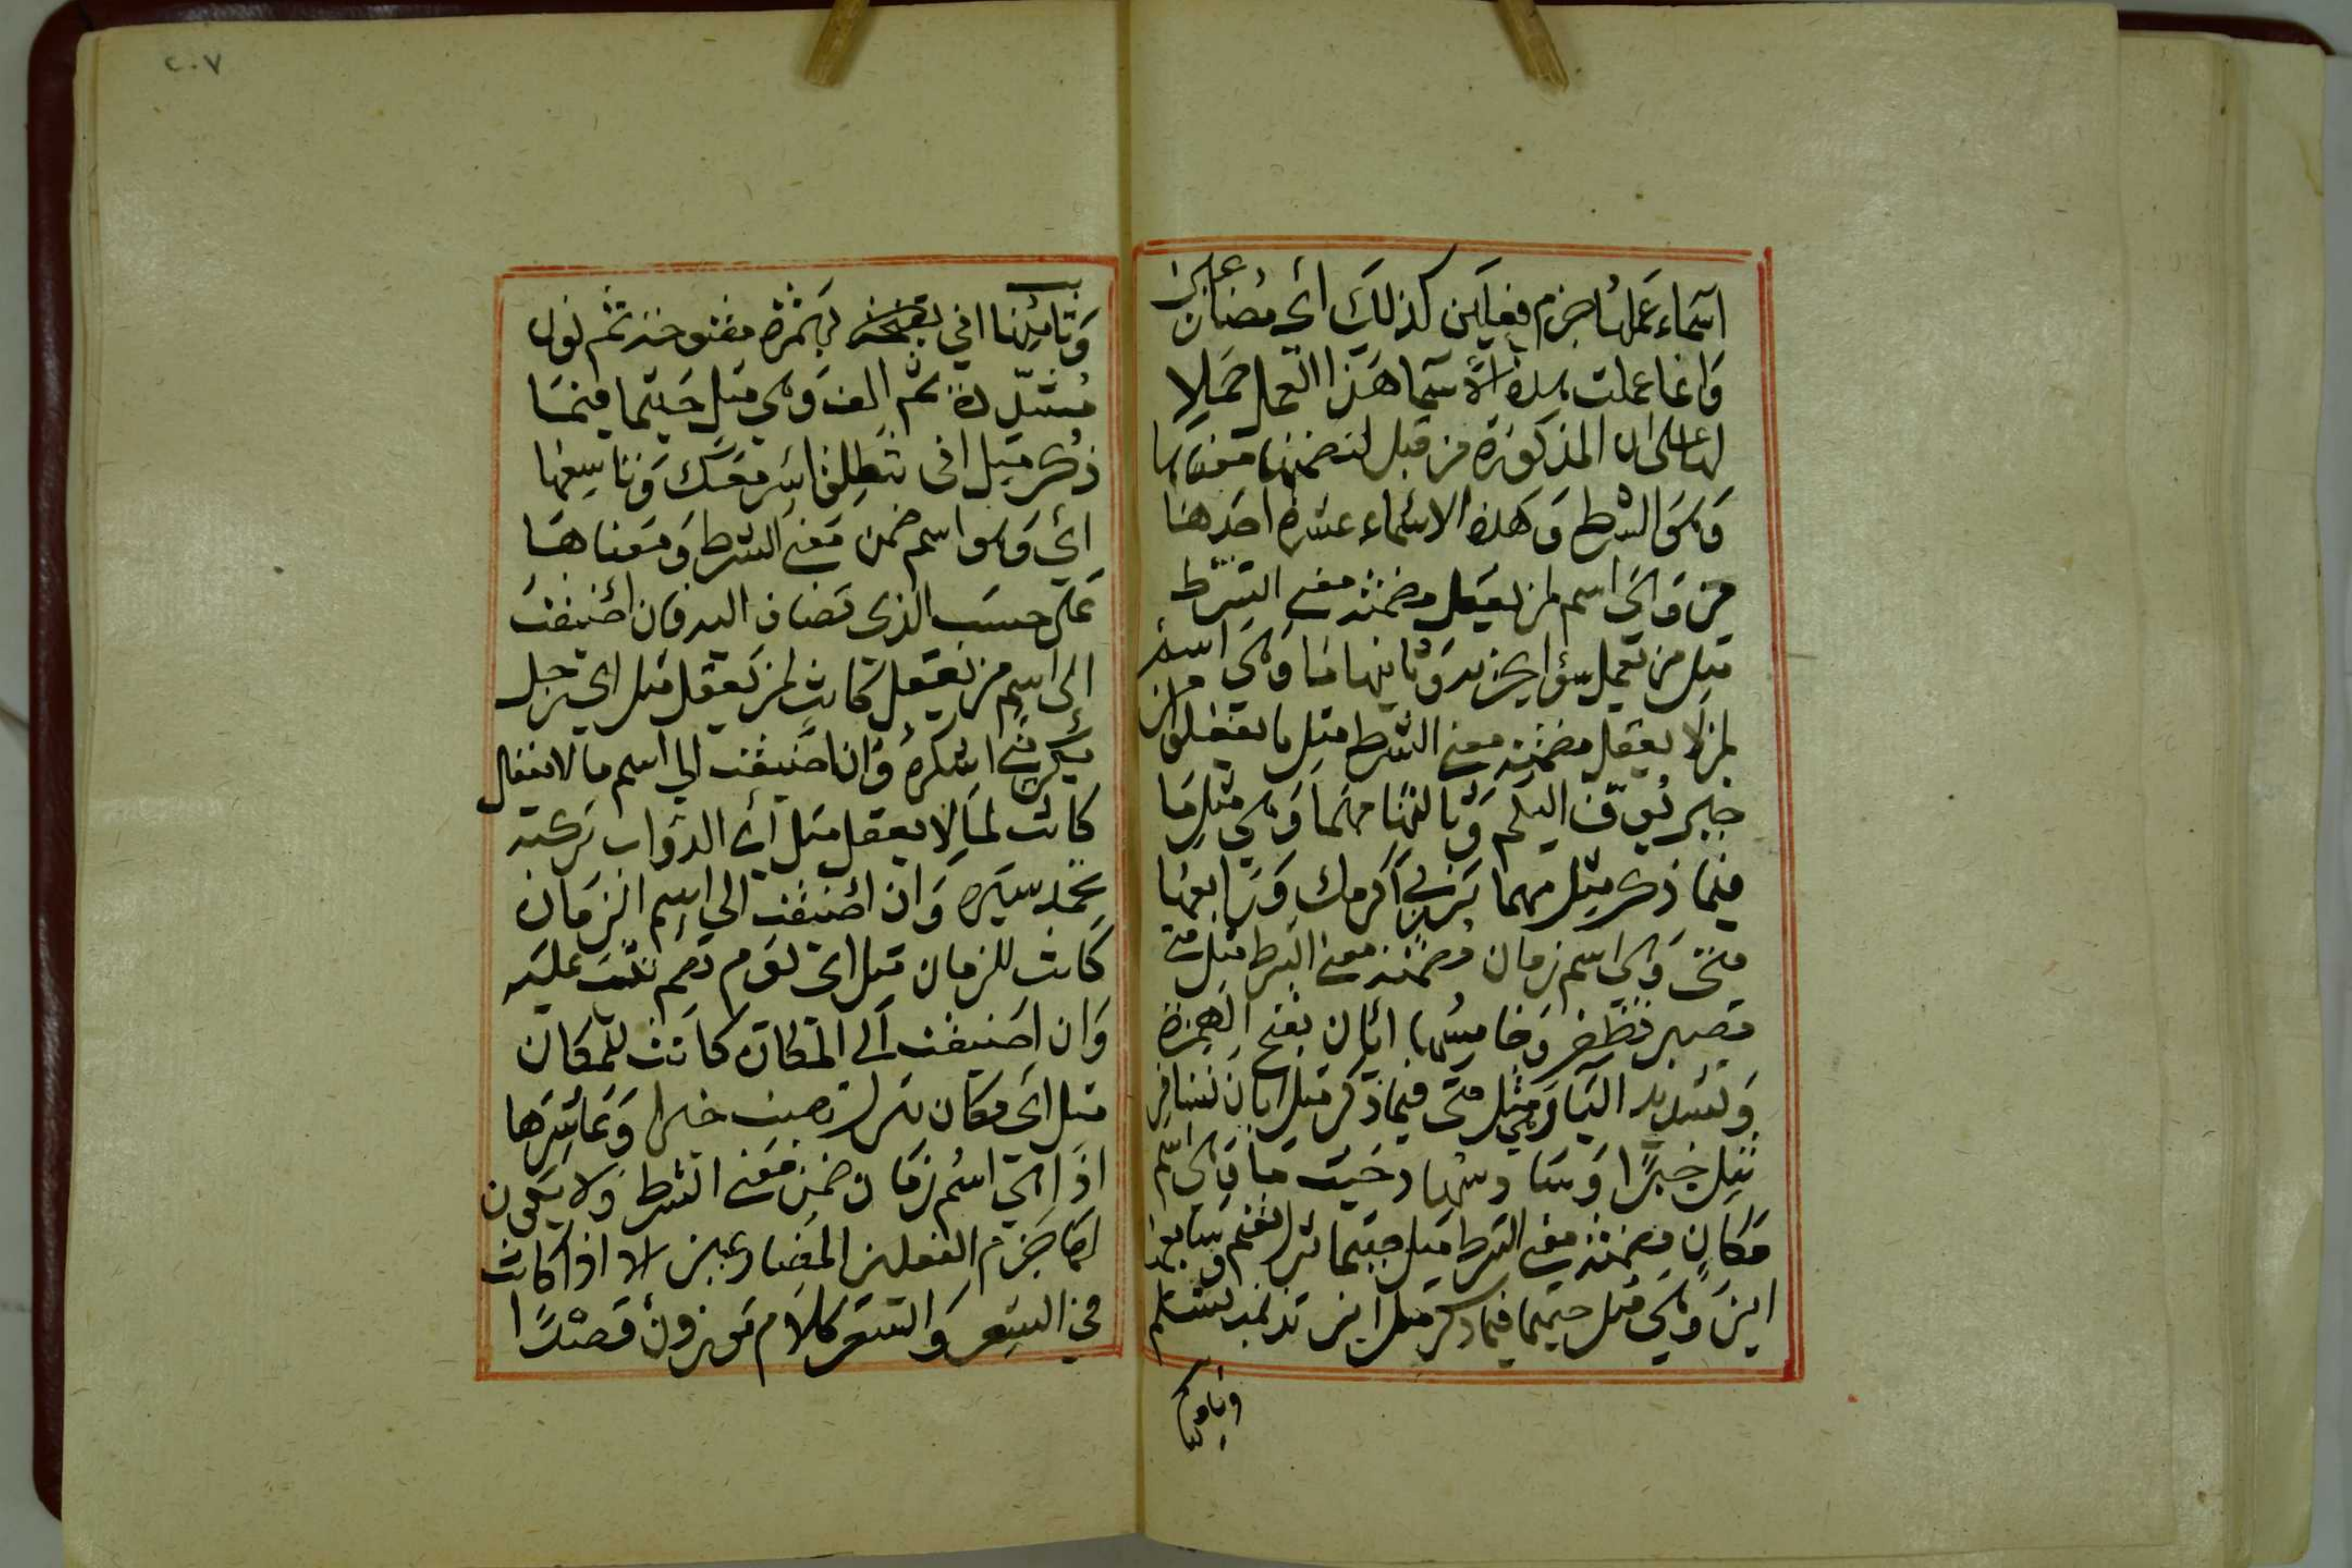 اسماء عملها جزم فعلين كذلك اي مضارعين
وانما عملت هذه الاسما هذا العمل حملا
لها على ان المذكورة من قبل لتضمنها معناها
وهو الشرط وهذه الاسماء عشرة احدها
من وهي اسم لمن يعقل مضمنة معني الشرط
مثل من يعمل سؤا يجز به وثانيها ما وهي اسم
لمن لا يعقل مضمنة معني الشرط مثل ما تفعلوا من
خير يوف اليكم وثالثها مهما وهي مثل ما
فيما ذكر مثل مهما تزرني اكرمك ورابعها
متى وهي اسم زمان مضمنة معني الشرط مثل متى
تصبر تظفر وخامسها ايان بفتح الهمزة
وتشديد اليا وهي مثل متى فيما ذكر مثل ايان تسافر
تنل خيرا وسادسها حيث ما وهي اسم
مكان مضمنة معني الشرط مثل حيثما تنزل تغنم وسابعها
اين وهي مثل حيثما فيما ذكر مثل اين تذهب تسلم
وثامنها
٢٠٧
وثامنها اني بهمزة مفتوحة ثم نون
مشددة ثم الف وهي مثل حيثما فيما
ذكر مثل اني تنطلق اسر معك وتاسعها
اي وهو اسم ضمن معني الشرط ومعناها
على حسب الذي تضاف اليه فان اضيفت
الى اسم من يعقل كانت لمن يعقل مثل اي رجل
يكرمني اشكره وان اضيفت الي اسم ما لا يعقل
كانت لما لا يعقل مثل اي الدواب تركبه
تحمد سيره وان اضيفت الي اسم الزمان
كانت للزمان مثل اي يوم تصم تثب عليه
وان اضيفت الي المكان كانت للمكان
مثل اي مكان تنزل تصب خيرا وعاشرها
اذا وهي اسم زمان ضمن معني الشرط ولا يكون
لها جزم الفعلين المضارعين الا اذا كانت
في الشعر والشعر كلام موزون قصدا